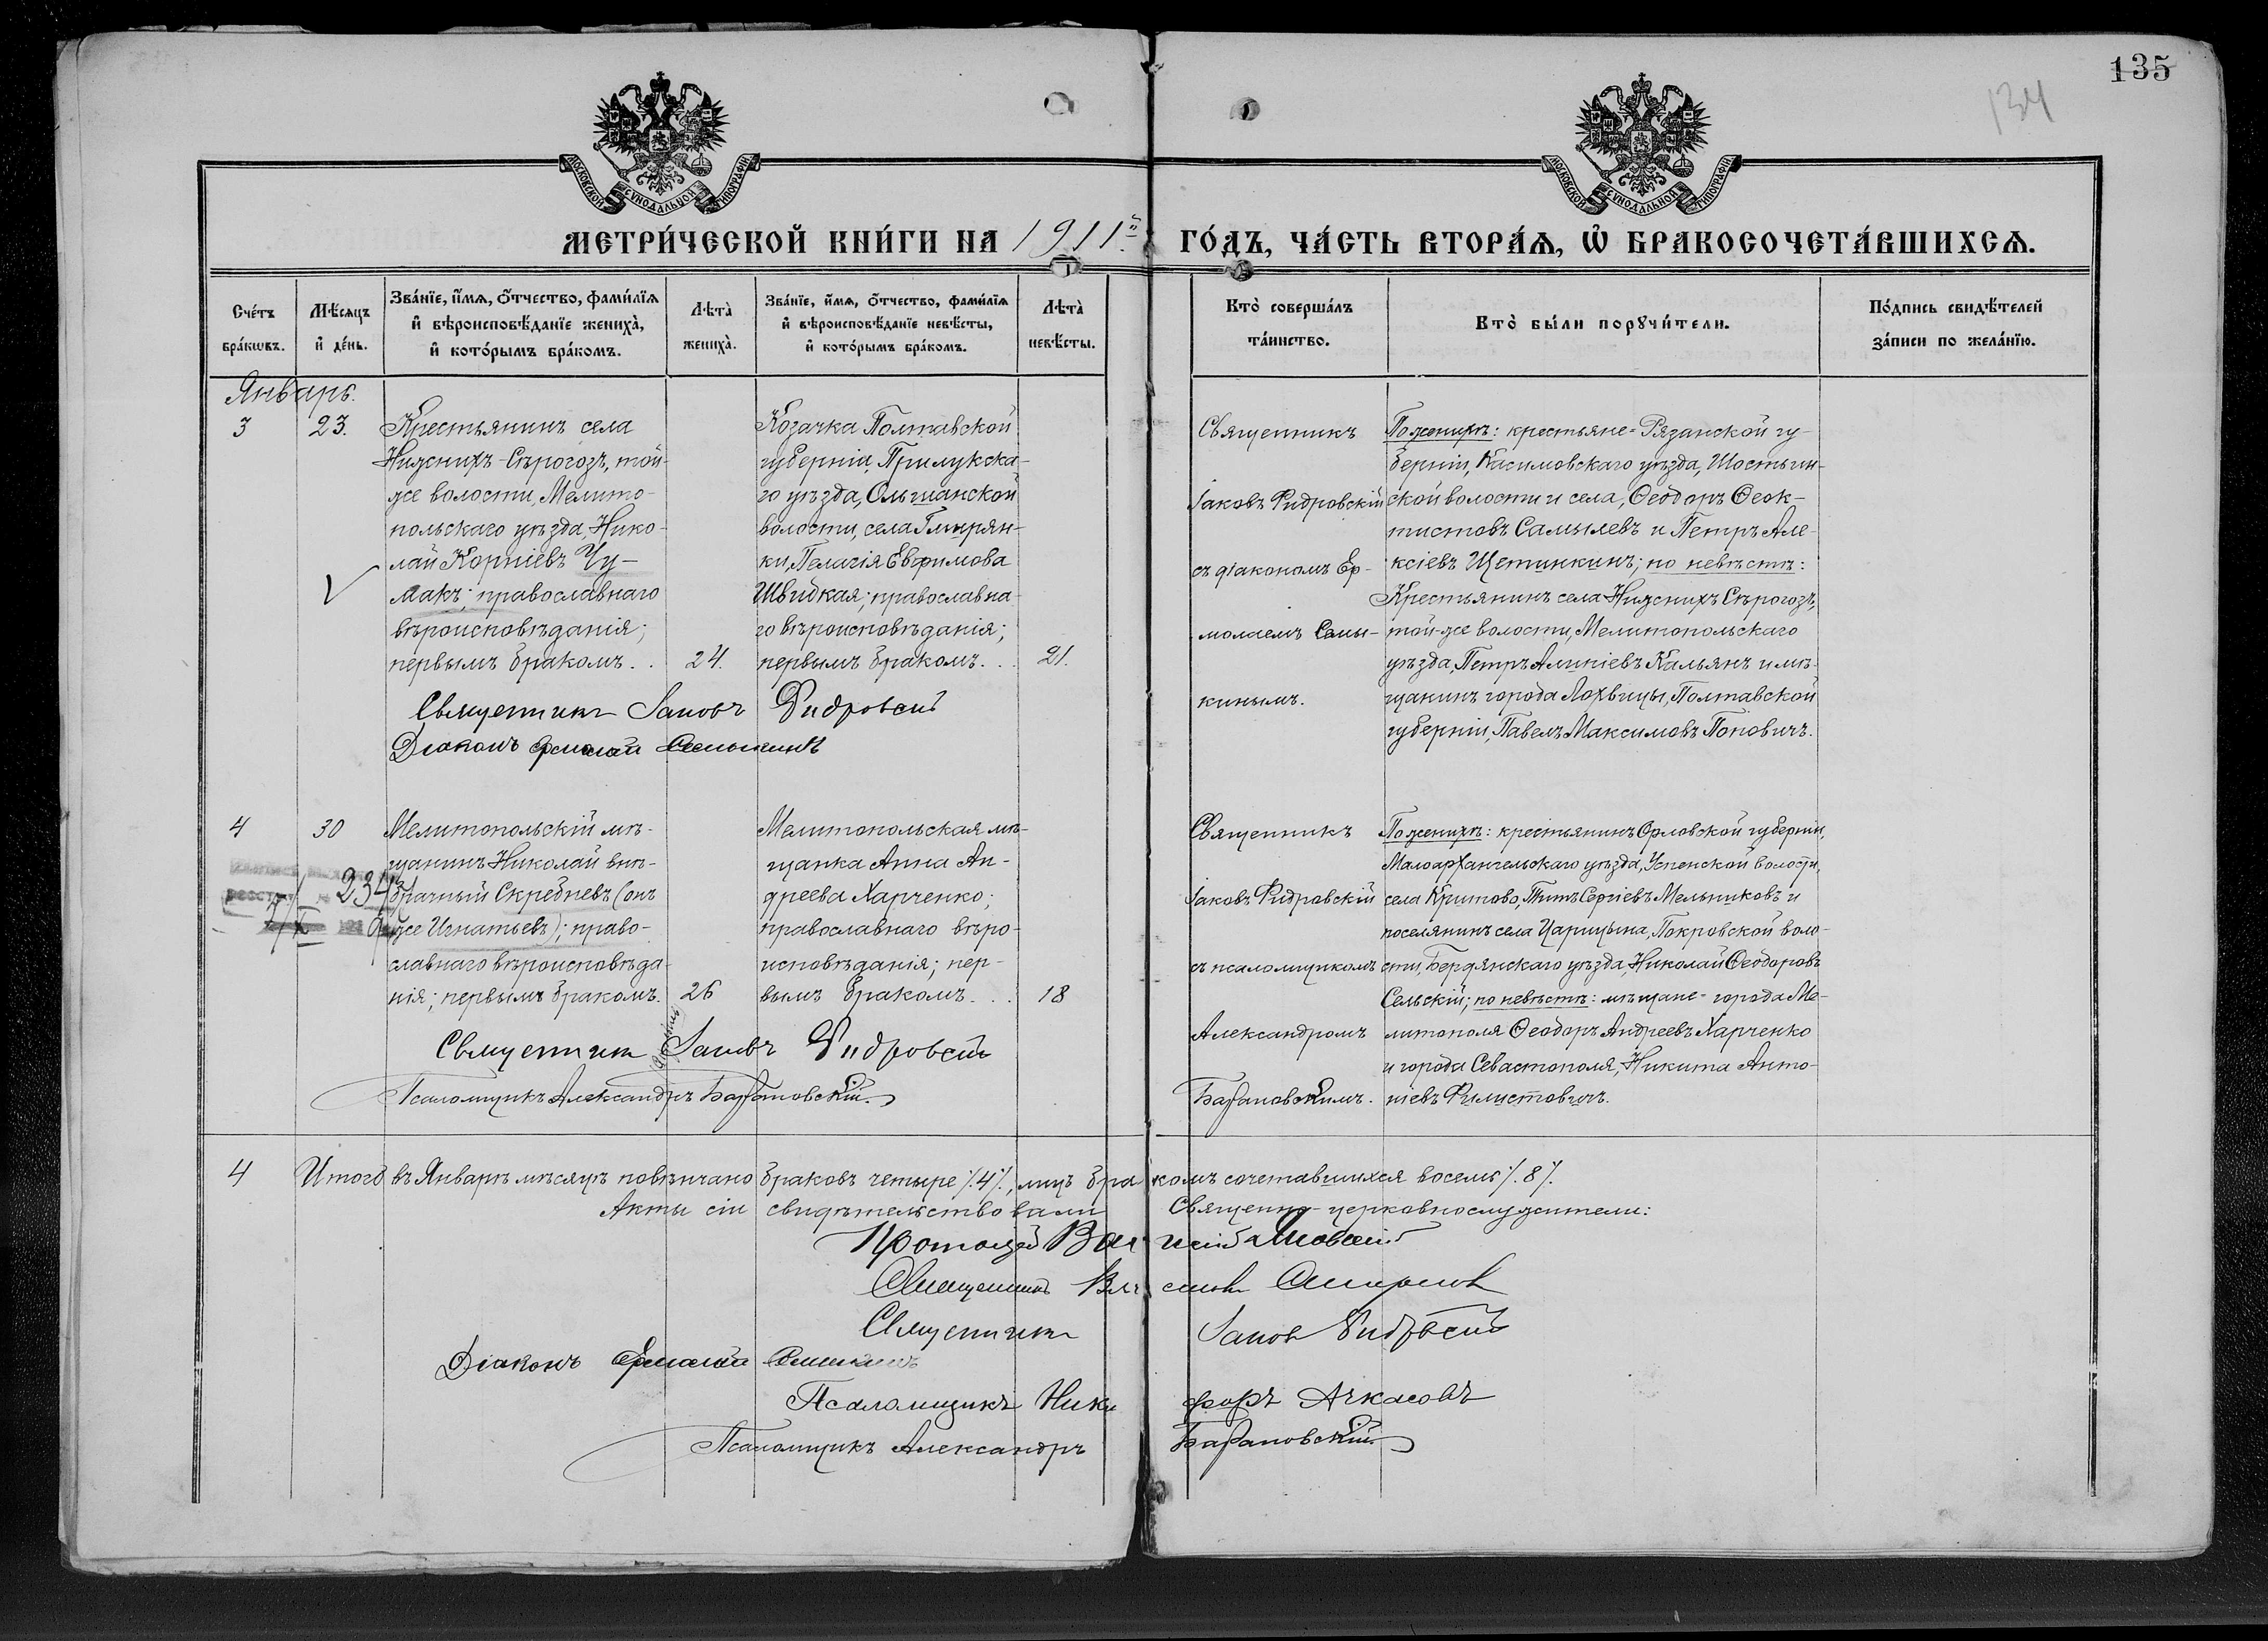 135
134
МОСКОВСКОЙ СѴНОДАЛЬНОЙ ТИПОГРАФІИ
МОСКОВСКОЙ СѴНОДАЛЬНОЙ ТИПОГРАФІИ
МЕТРИ́ЧЕСКОЙ КНИ́ГИ НА 1911й ГО́ДЪ, ЧА́СТЬ ВТОРА́Ѧ, Ѡ҆ БРАКОСОЧЕТА́ВШИХСѦ.
Сче́тъ
бра́кѡвъ.
Мѣ́сяцъ
и҆ де́нь.
Зва́нїе, и҆́мѧ, ѻ҆́тчество, фами́лїѧ
и҆ вѣроисповѣ́данїе жениха̀,
и҆ кото́рымъ бра́комъ.
Лѣта̀
жениха̀.
Зва́нїе, и҆́мѧ, ѻ҆́тчество, фами́лїѧ
и҆ вѣроисповѣ́данїе невѣ́сты,
и҆ кото́рымъ бра́комъ.
Лѣта̀
невѣ́сты.
Кто̀ соверша́лъ
та́инство.
Кто̀ бы́ли порꙋчи́тели.
По́дпись свидѣ́телей
за́писи по жела́нїю.
Январь.
3
23.
Крестьянинъ села
Нижнихъ-Сѣрогозъ, той-
же волости, Мелито-
польскаго уѣзда, Нико-
лай Корніевъ Чу-
макъ; православнаго
вѣроисповѣданія;
первымъ бракомъ. .
24.
Козачка Полтавской
губерніи, Прилукска-
го уѣзда, Ольшанской
волости, села Гмырян-
ки, Пелагія Евфимова
Швидкая; православна-
го вѣроисповѣданія;
первымъ бракомъ. . .
21.
Священникъ
Іаковъ Фидровскій
съ діакономъ Ер-
молаемъ Семы-
кинымъ.
По женихѣ: крестьяне-Рязанской гу-
берніи, Касимовскаго уѣзда, Шостьин-
ской волости и села, Ѳеодоръ Ѳеок-
тистовъ Самылевъ и Петръ Але-
ксіевъ Щетинкинъ; по невѣстѣ:
Крестьянинъ села Нижнихъ Сѣрогозъ,
той-же волости, Мелитопольскаго
уѣзда, Петръ Алипіевъ Кальянъ и мѣ-
щанинъ города Лохвицы, Полтавской
губерніи, Павелъ Максимовъ Поповичъ.
Священникъ Іаковъ Фидровскій
Діаконъ Ермолай Семыкинъ
4
30
234
Мелитопольскій мѣ-
щанинъ Николай внѣ-
брачный Скребневъ (онъ
же Игнатьевъ); право-
славнаго вѣроисповѣда-
нія; первымъ бракомъ.
26
Мелитопольская мѣ-
щанка Анна Ан-
дреева Харченко;
православнаго вѣро-
исповѣданія; пер-
вымъ бракомъ. . .
18
Священникъ
Іаковъ Фидровскій
съ псаломщикомъ
Александромъ
Барановскимъ.
По женихѣ: крестьянинъ Орловской губерніи,
Малоархангельскаго уѣзда, Успенской волости,
села Критово, Титъ Сергіевъ Мельниковъ и
поселянинъ села Царицына, Покровской воло-
сти, Бердянскаго уѣзда, Николай Ѳеодоровъ
Сельскій; по невѣстѣ: мѣщане-города Ме-
литополя Ѳеодоръ Андреевъ Харченко
и города Севастополя, Никита Анто-
ніевъ Филистовичъ.
Священникъ Іаковъ Фидровскій
Псаломщикъ Александръ Барановскій
4 Итого въ Январѣ мѣсяцѣ повѣнчано браковъ четыре /.4/., лицъ бракомъ сочетавшихся восемь /.8/.
Акты сіи свидѣтельствовали Священно-церковнослужители:
Протоіерей
Священникъ
Священникъ Іаковъ Фидровскій
Діаконъ Ермолай Семыкинъ
Псаломщикъ Никифоръ Ачкасовъ
Псаломщикъ Александръ Барановскій